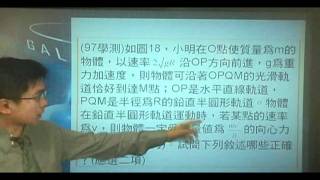 BAL
(97學測)如圖18，小明在O點使質量為m的
物體，以速率2√gR 沿OP方向前進，g為重
力加速度，則物體可沿著OPQM的光滑軌
道恰好到達M點；OP是水平直線軌道，
PQM是半徑為R的鉛直半圓形軌道。物體
在鉛直半圓形軌道運動時，若某點的速率
為v，則物體一定 量值為 的向心力
試問下列敘述哪些正
確？(應選二項)